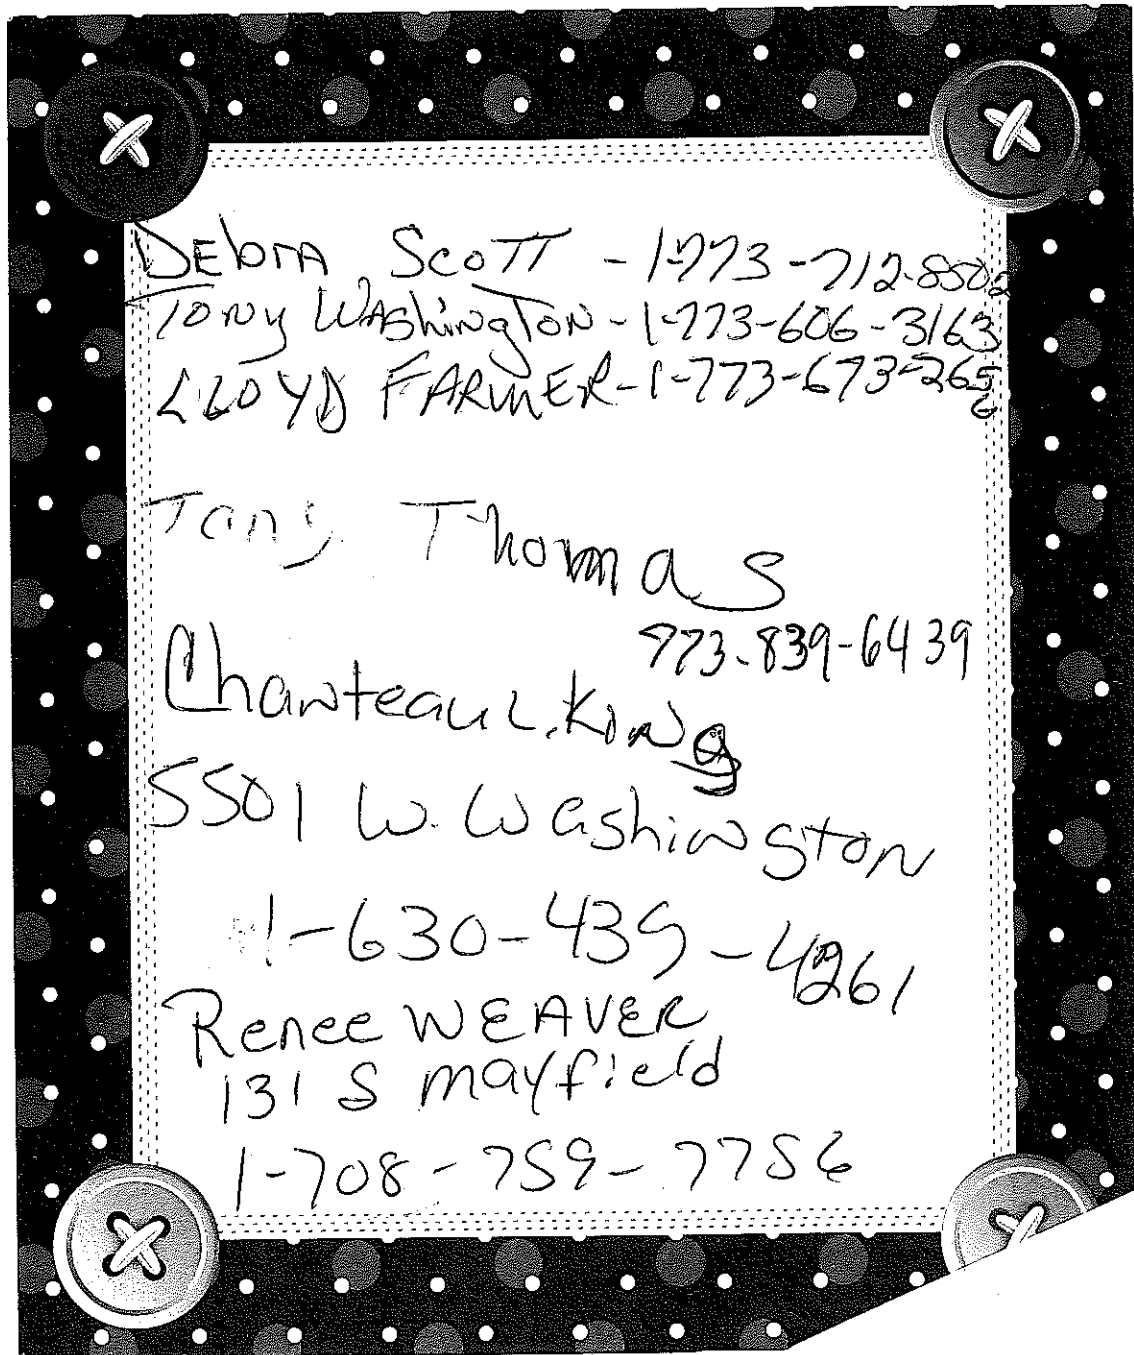 DEbrA SCOTT - 1-773-712-8502
TONy WAShingTON - 1-773-606-3163
LLOYD FARMER - 1-773-673-265
6
Tony Thomas
773-839-6439
Chanteau L. King
5501 W. Washington
1-630-439-4261
Renee WEAVER
131 S mayfield
1-708-759-7756